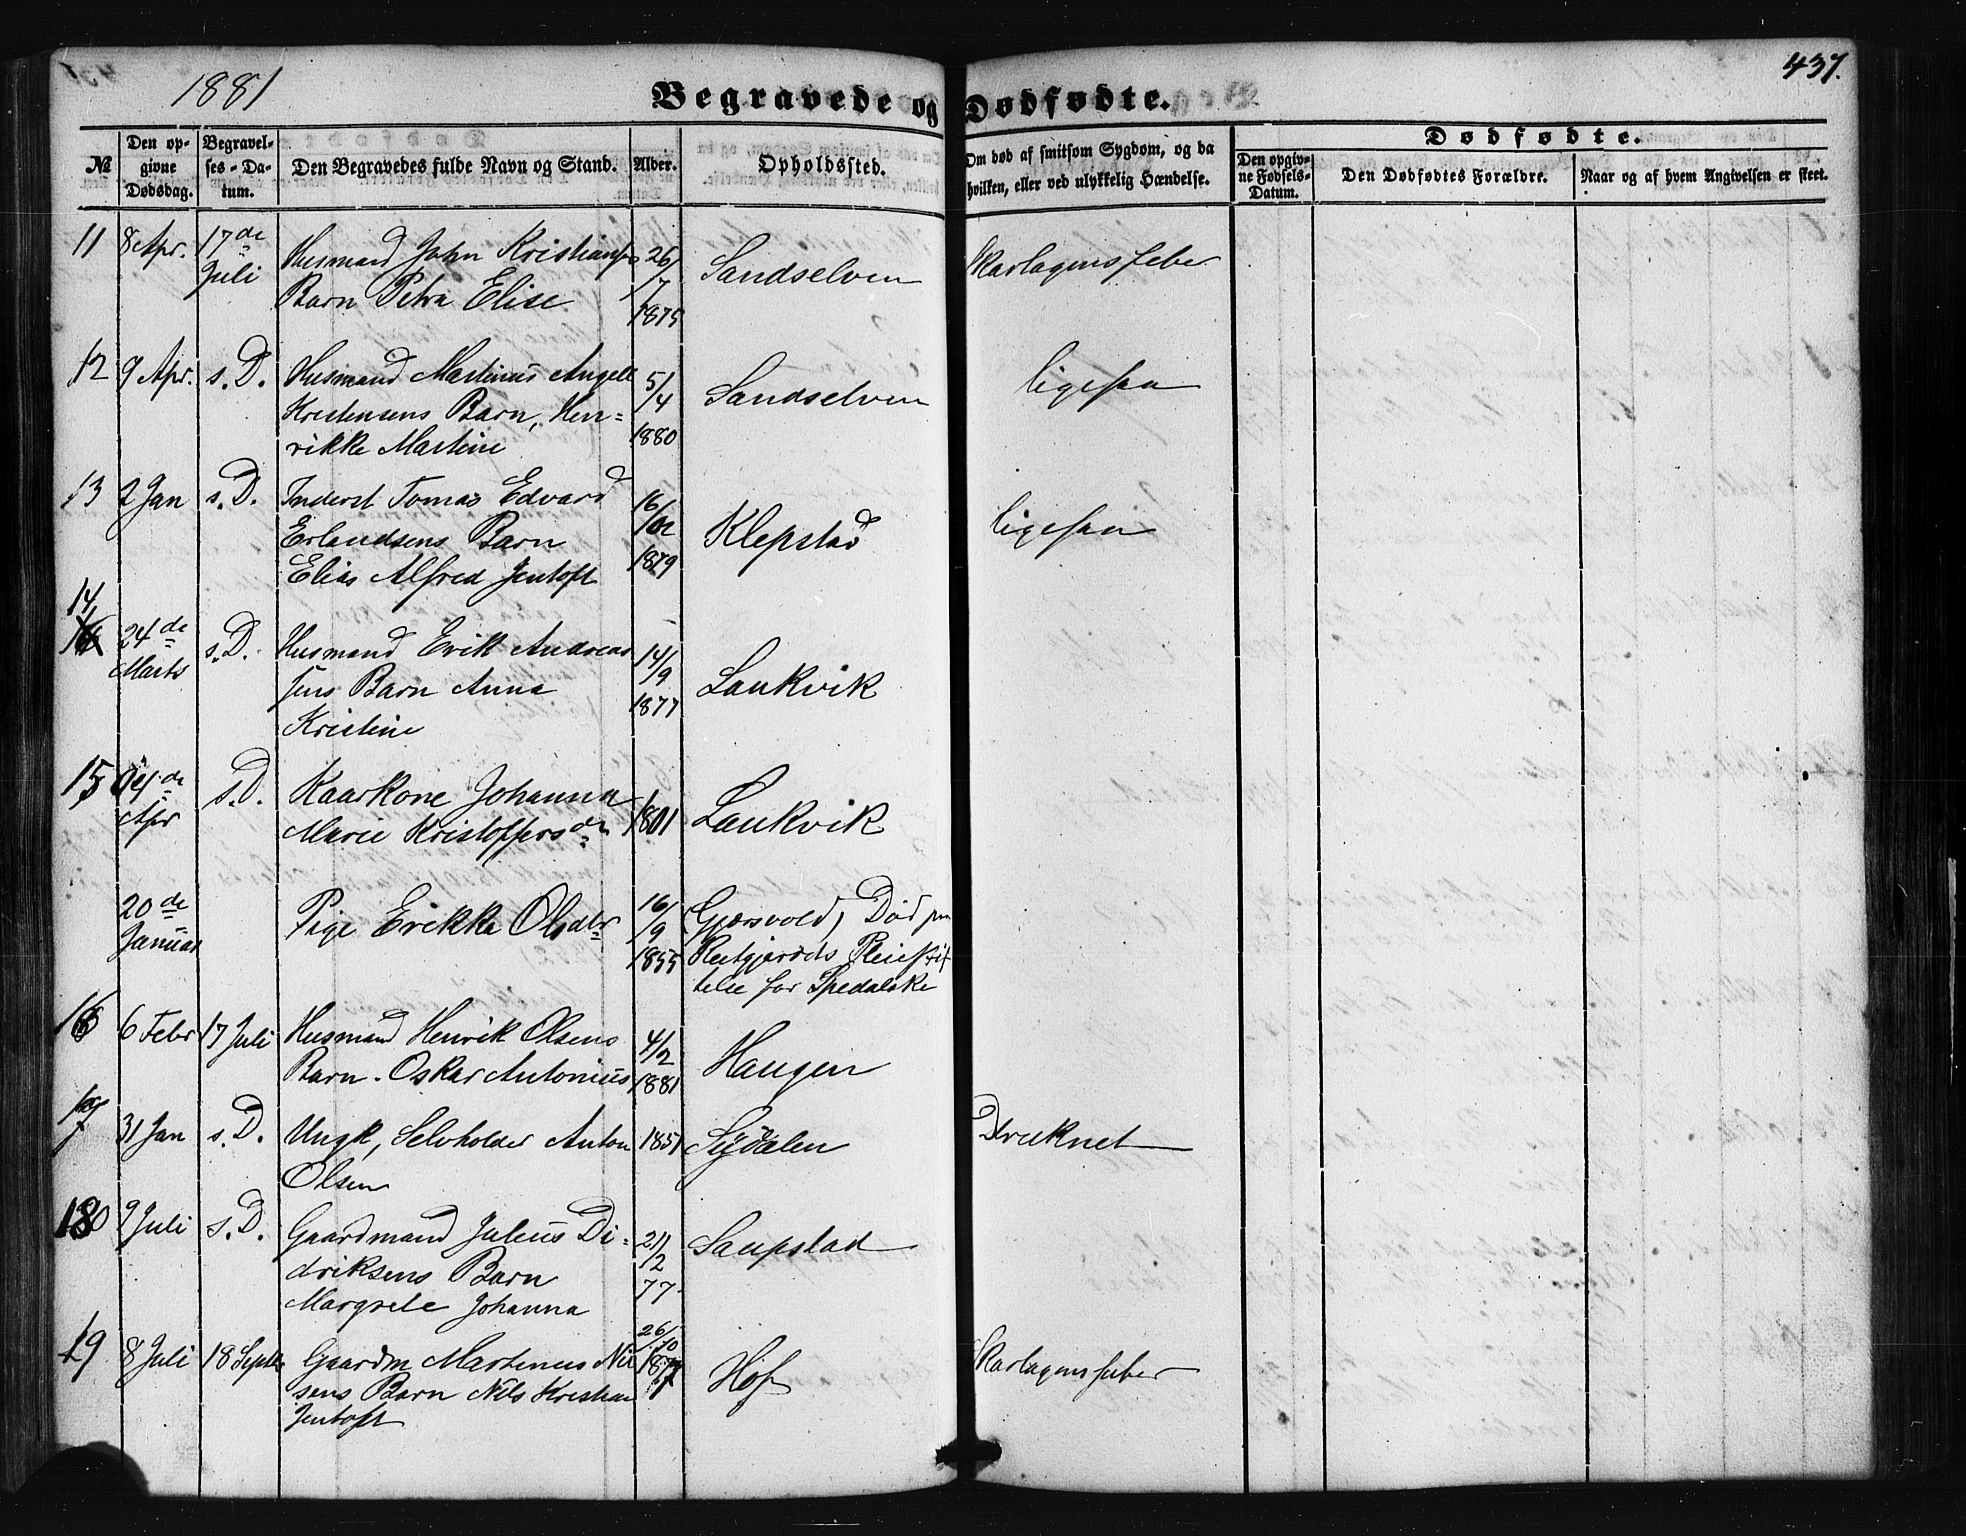 1881
437.
Begravede og Dødfødte.
№
Den opgivne Dødsdag.
Begravelses-Datum.
Den Begravedes fulde Navn og Stand.
Alder.
Opholdssted.
Om død af smitsom Sygdom, og da hvilken, eller ved ulykkelig Hændelse.
Dødfødte.
Den opgivne Fødsels-Datum.
Den Dødfødtes Forældre.
Naar og af hvem Angivelsen er skeet.
11 8 Apr. 17de Juli Husmand John Kristians Barn Petra Elise 26/7 1875 Sandselven Skarlagensfeber
12 9 Apr. s. D. Husmand Martinus Angell Kristensens Barn, Henrikke Martine 5/4 1880 Sandselven ligesaa
13 2 Jan s. D. Inderst Tomas Edvard Erlandsens Barn Elias Alfred Jentoft 16/02 1879 Klepstad ligesaa
14 24de Marts s. D. Husmand Erik Andreassens Barn Anna Kristine 14/9 1877 Laukvik
15 Apr s. D. Kaarkone Johanna Marie Kristoffersdr 1801 Laukvik
20de Januar Pige Erikka Olsdtr 16/9 1855 Gjærsvold, Død paa Reitgjærdds Pleiestiftelse for Spedalske
16 6 Febr 17 Juli Husmand Henrik Olsens Barn. Oskar Antonius 4/2 1881 Haugen
17 31 Jan s. D. Ungk, Selvholder Anton Olsen 1851 Sydalen Druknet
18 9 Juli s. D. Gaardmand Julius Didriksens Barn Margrete Johanna 21/2 77 Saupstad
19 8 Juli 18 Septbr Gaardm Martinus Nilsens Barn Nils Kristian Jentoft 26/10 1877 Hof Skarlagensfeber